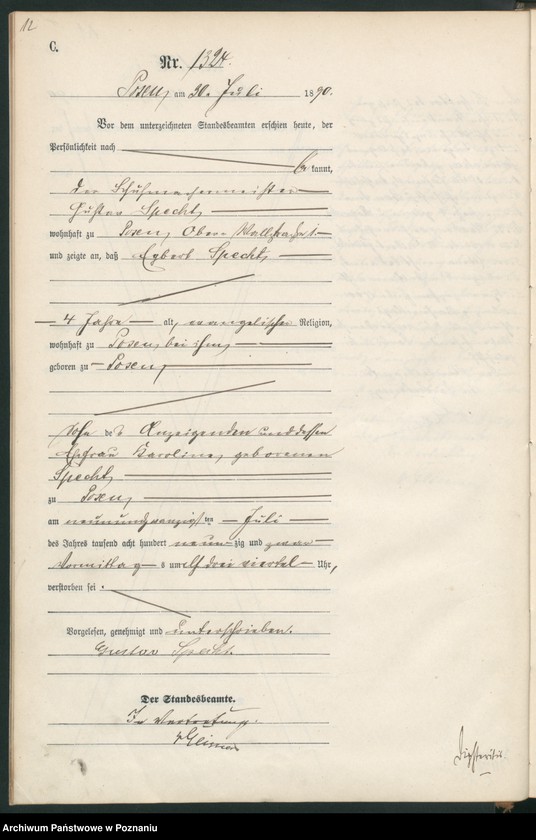 12
C.
Nr. 1324.
Posen, am 20. Juli 1890.
Vor dem unterzeichneten Standesbeamten erschien heute, der
Persönlichkeit nach
kannt,
der Schuhmachermeister
Gustav Specht,
wohnhaft zu Posen, Obere Wallstraße 1
und zeigte an, daß Egbert Specht,
4 Jahre alt, evangelischer Religion,
wohnhaft zu Posen, bei ihm,
geboren zu Posen,
Sohn des Anzeigenden und dessen
Ehefrau Karoline, geborenen
Specht,
zu Posen,
am ten Juli
des Jahres tausend acht hundert neunzig und zwar
Vormittags um elf drei viertel Uhr,
verstorben sei.
Vorgelesen, genehmigt und unterschrieben.
Gustav Specht.
Der Standesbeamte.
In Vertretung.
Diphteritis.
Archiwum Państwowe w Poznaniu